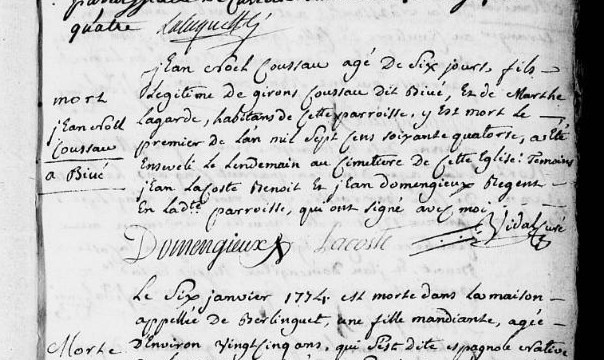 quatre
jean Noel Coussau agé De Six jours, fils
Legitime de girons Coussau dit Bivé, Et de Marthe
Lagarde, habitans de Cette parroisse, y Est mort Le
premier de Lan mil Sept Cens Soixante quatorse, a Eté
Enseveli Le Lendemain au Cimetiere de Cette Eglise: Temoins
jean LaCoste Benoit Et jean Domengieux Regent
En Lad.te parroisse, qui ont signé avec moi
Vidal Curé
Domengieux Lacoste
mort
jean Noel
Coussau
a Bivé
Le Six janvier 1774 est morte dans La maison
appellée de Berlinguet, une fille mandiante, agée
D'Environ Vingt Cinq ans, qui s'est dite espagnole
Morte